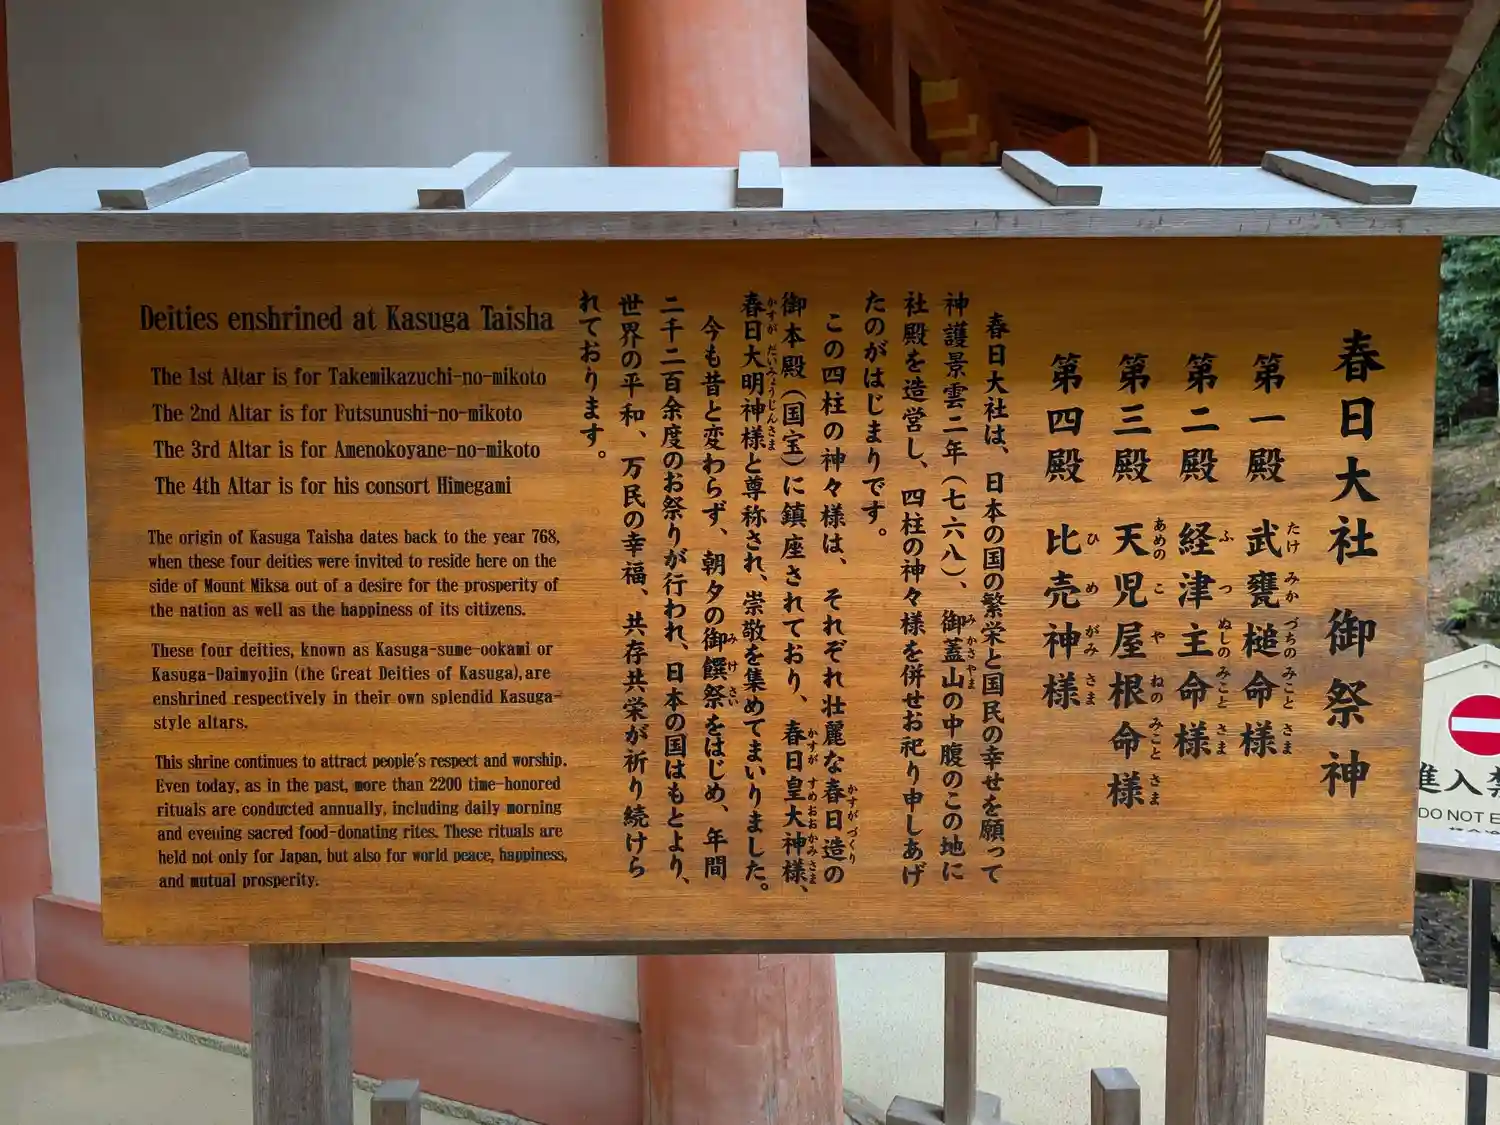 春日大社 御祭神
第一殿 武甕槌命様
たけ みか づちの みこと さま
第二殿 経津主命様
ふ つ ぬしの みこと さま
第三殿 天児屋根命様
あめの こ や ねの みこと さま
第四殿 比売神様
ひ め がみ さま
春日大社は、日本の国の繁栄と国民の幸せを願って
神護景雲二年(七六八)、御蓋山の中腹のこの地に
み かさやま
社殿を造営し、四柱の神々様を併せお祀り申しあげ
たのがはじまりです。
この四柱の神々様は、それぞれ壮麗な春日造の
かすがづくり
御本殿(国宝)に鎮座されており、春日皇大神様、
かすが すめおおかみ さま
春日大明神様と尊称され、崇敬を集めてまいりました。
かすが だいみょうじんさま
今も昔と変わらず、朝夕の御饌祭をはじめ、年間
み け さい
二千二百余度のお祭りが行われ、日本の国はもとより、
世界の平和、万民の幸福、共存共栄が祈り続けら
れております。
Deities enshrined at Kasuga Taisha
The 1st Altar is for Takemikazuchi-no-mikoto
The 2nd Altar is for Futsunushi-no-mikoto
The 3rd Altar is for Amenokoyane-no-mikoto
The 4th Altar is for his consort Himegami
The origin of Kasuga Taisha dates back to the year 768,
when these four deities were invited to reside here on the
side of Mount Miksa out of a desire for the prosperity of
the nation as well as the happiness of its citizens.
These four deities, known as Kasuga-sume-ookami or
Kasuga-Daimyojin (the Great Deities of Kasuga), are
enshrined respectively in their own splendid Kasuga-
style altars.
This shrine continues to attract people's respect and worship.
Even today, as in the past, more than 2200 time-honored
rituals are conducted annually, including daily morning
and evening sacred food-donating rites. These rituals are
held not only for Japan, but also for world peace, happiness,
and mutual prosperity.
進入禁
DO NOT E